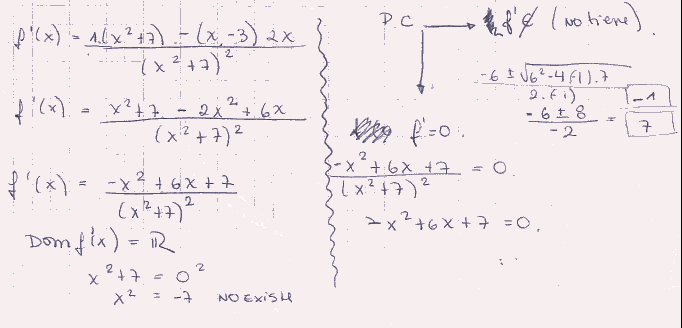 f'(x) = 1.(x²+7) - (x-3) 2x / (x²+7)²
f'(x) = x²+7 - 2x²+6x / (x²+7)²
f'(x) = -x²+6x+7 / (x²+7)²
Dom f'(x) = ℝ
x²+7 = 0²
x² = -7 NO EXISTE
P.C → f' ∉ (No tiene).
f'=0.
-x²+6x+7 / (x²+7)² = 0.
-x²+6x+7 = 0.
-6 ± √6²-4(-1).7 / 2.(-1)
-6 ± 8 / -2 = -1
7